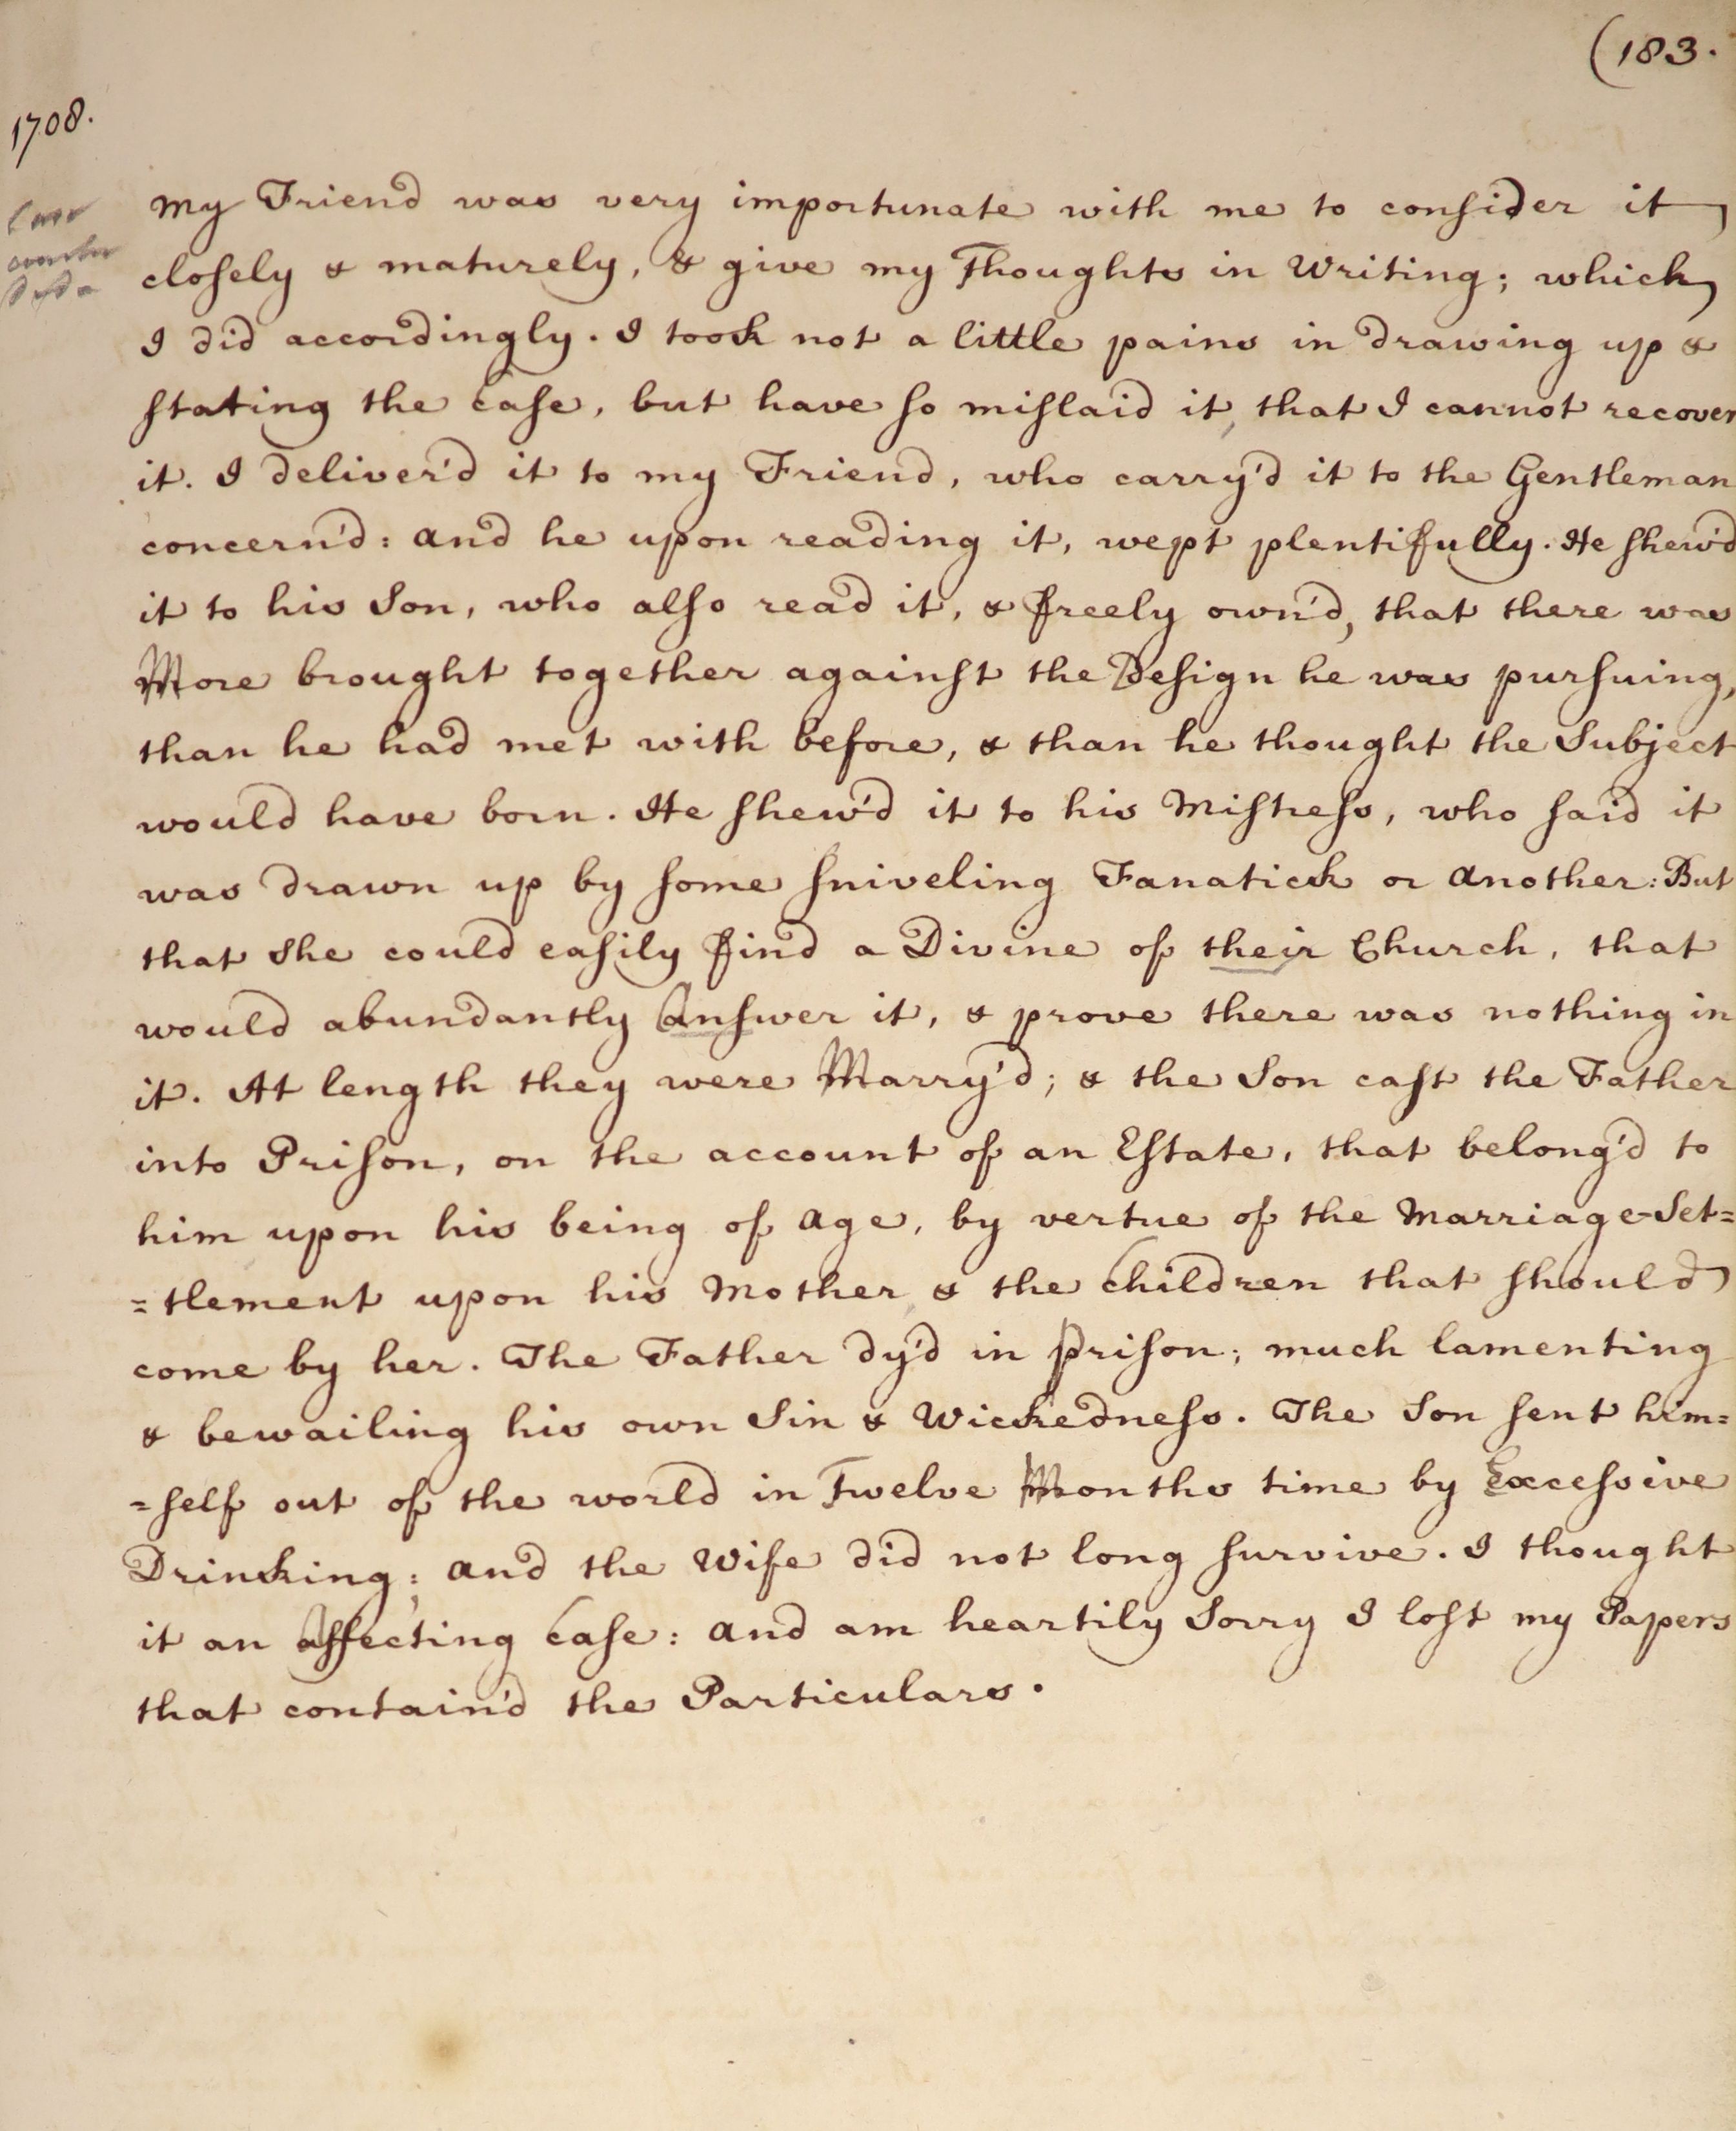 (183.
1708.
My Friend was very importunate with me to consider it
closely & maturely, & give my Thoughts in Writing; which
I did accordingly. I took not a little pains in drawing up &
stating the Case, but have so mislaid it, that I cannot recover
it. I deliver'd it to my Friend, who carry'd it to the Gentleman
concern'd: and he upon reading it, wept plentifully. He shew'd
it to his Son, who also read it, & freely own'd, that there was
More brought together against the Design he was pursuing,
than he had met with before, & than he thought the Subject
would have born. He shew'd it to his Mistress, who said it
was drawn up by some sniveling Fanatick or another: But
that She could easily find a Divine of their Church, that
would abundantly Answer it, & prove there was nothing in
it. At length they were Marry'd; & the Son cast the Father
into Prison, on the account of an Estate, that belong'd to
him upon his being of age, by vertue of the Marriage-Set=
=tlement upon his Mother & the Children that should
come by her. The Father dy'd in Prison; much lamenting
& bewailing his own Sin & Wickedness. The Son sent him=
=self out of the world in Twelve Months time by Excessive
Drinking; and the Wife did not long survive. I thought
it an Affecting Case: and am heartily Sorry I lost my Papers
that contain'd the Particulars.